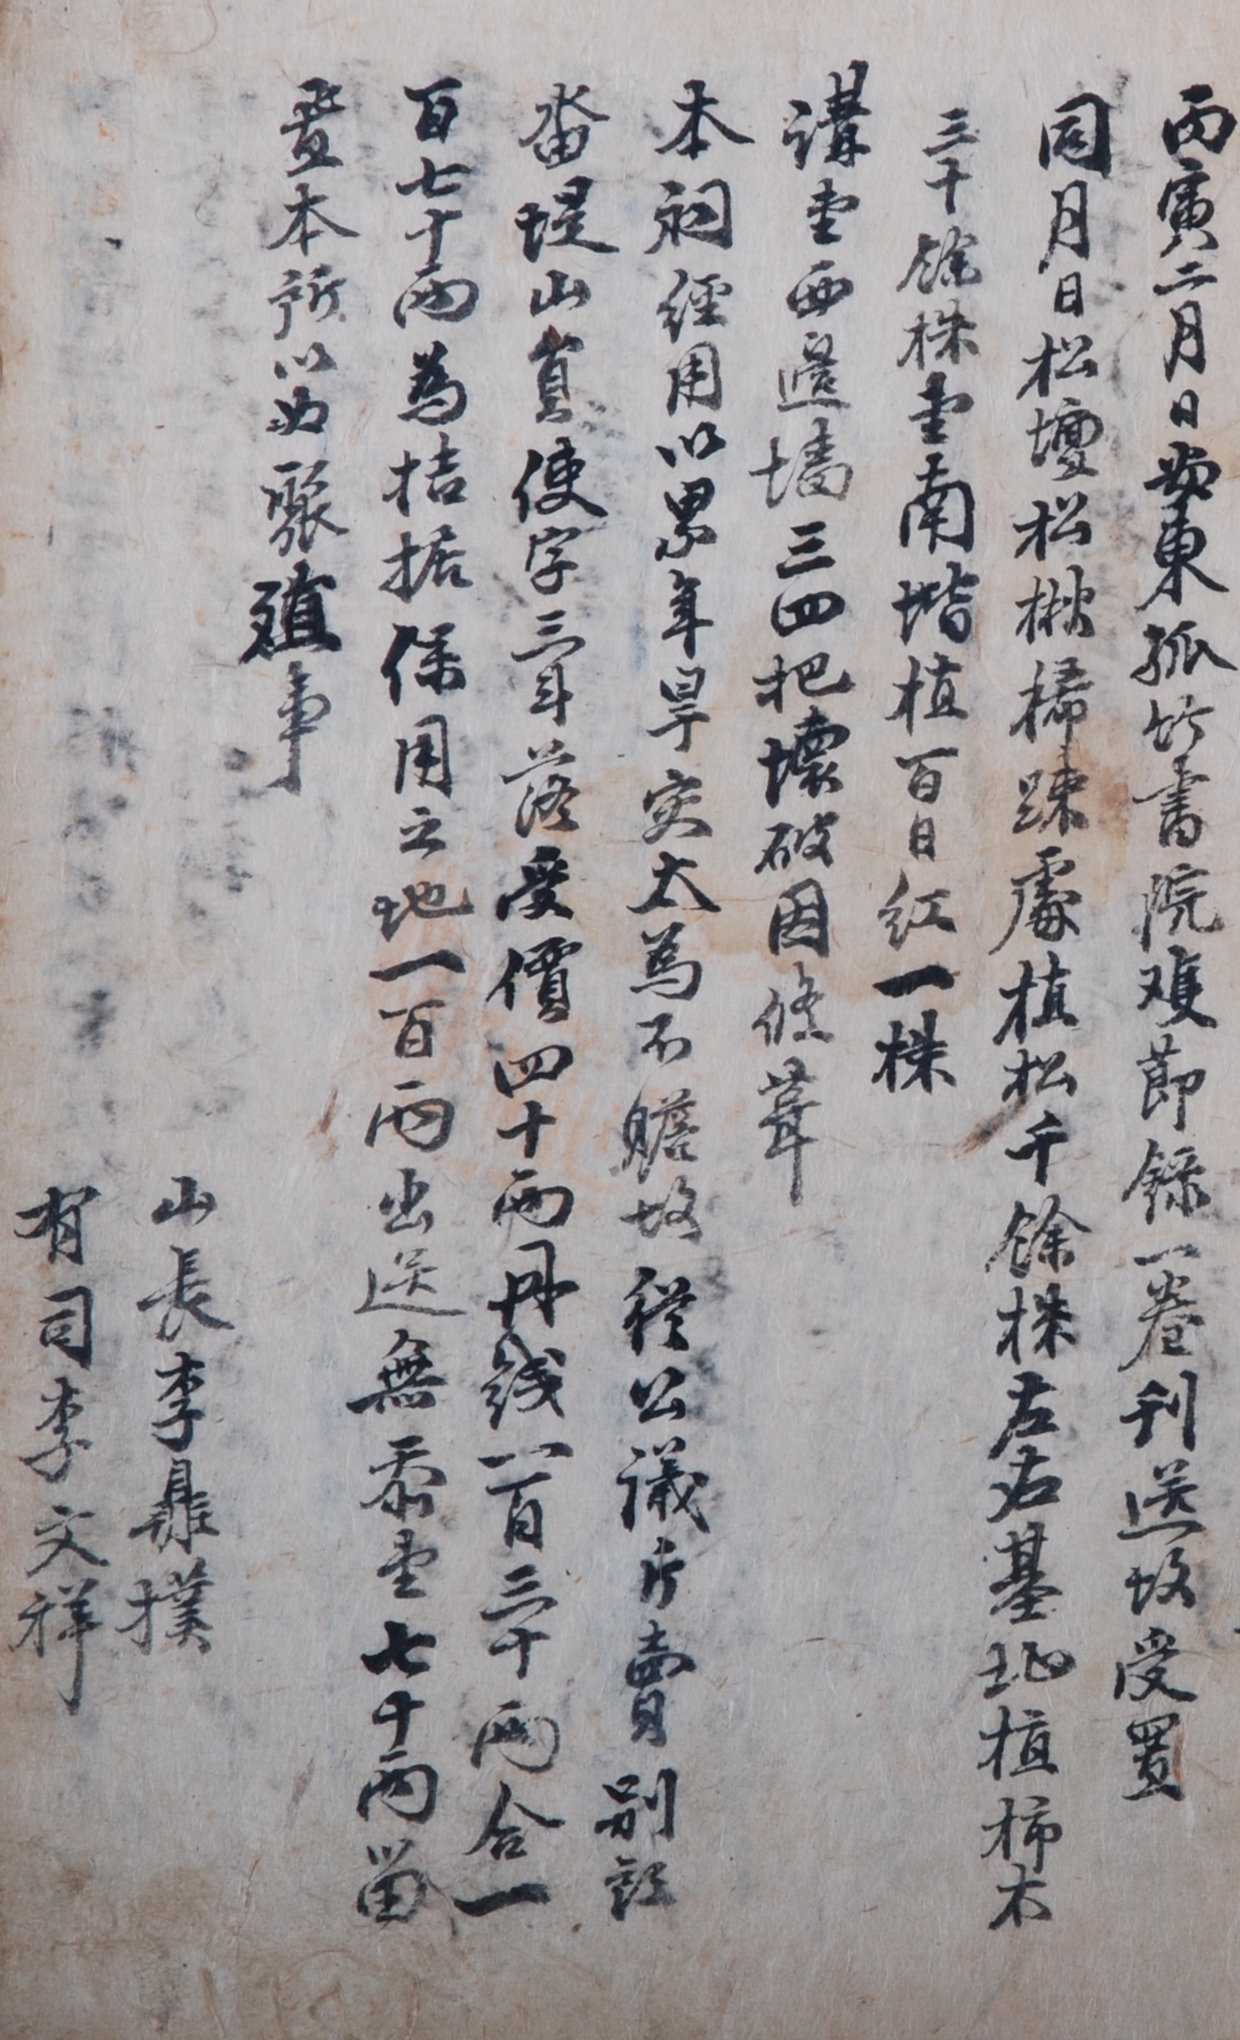 丙寅二月日安東孤竹書院双節錄一卷刊送故受置
同月日松壇松楸稀踈處植松千餘株左右基址植柿木
三十餘株堂南堦植百日紅一株
講堂西邊墻三四把壞破因修葺
本祠經用以累年旱灾太爲不贍故從公議斥賣別記
畓堤山員使字三斗落受價四十兩丹錢一百三十兩合一
百七十兩為拮据保用之地一百兩出送無忝堂七十兩留
置本所以為聚殖事
山長李鼎樸
有司李文祥